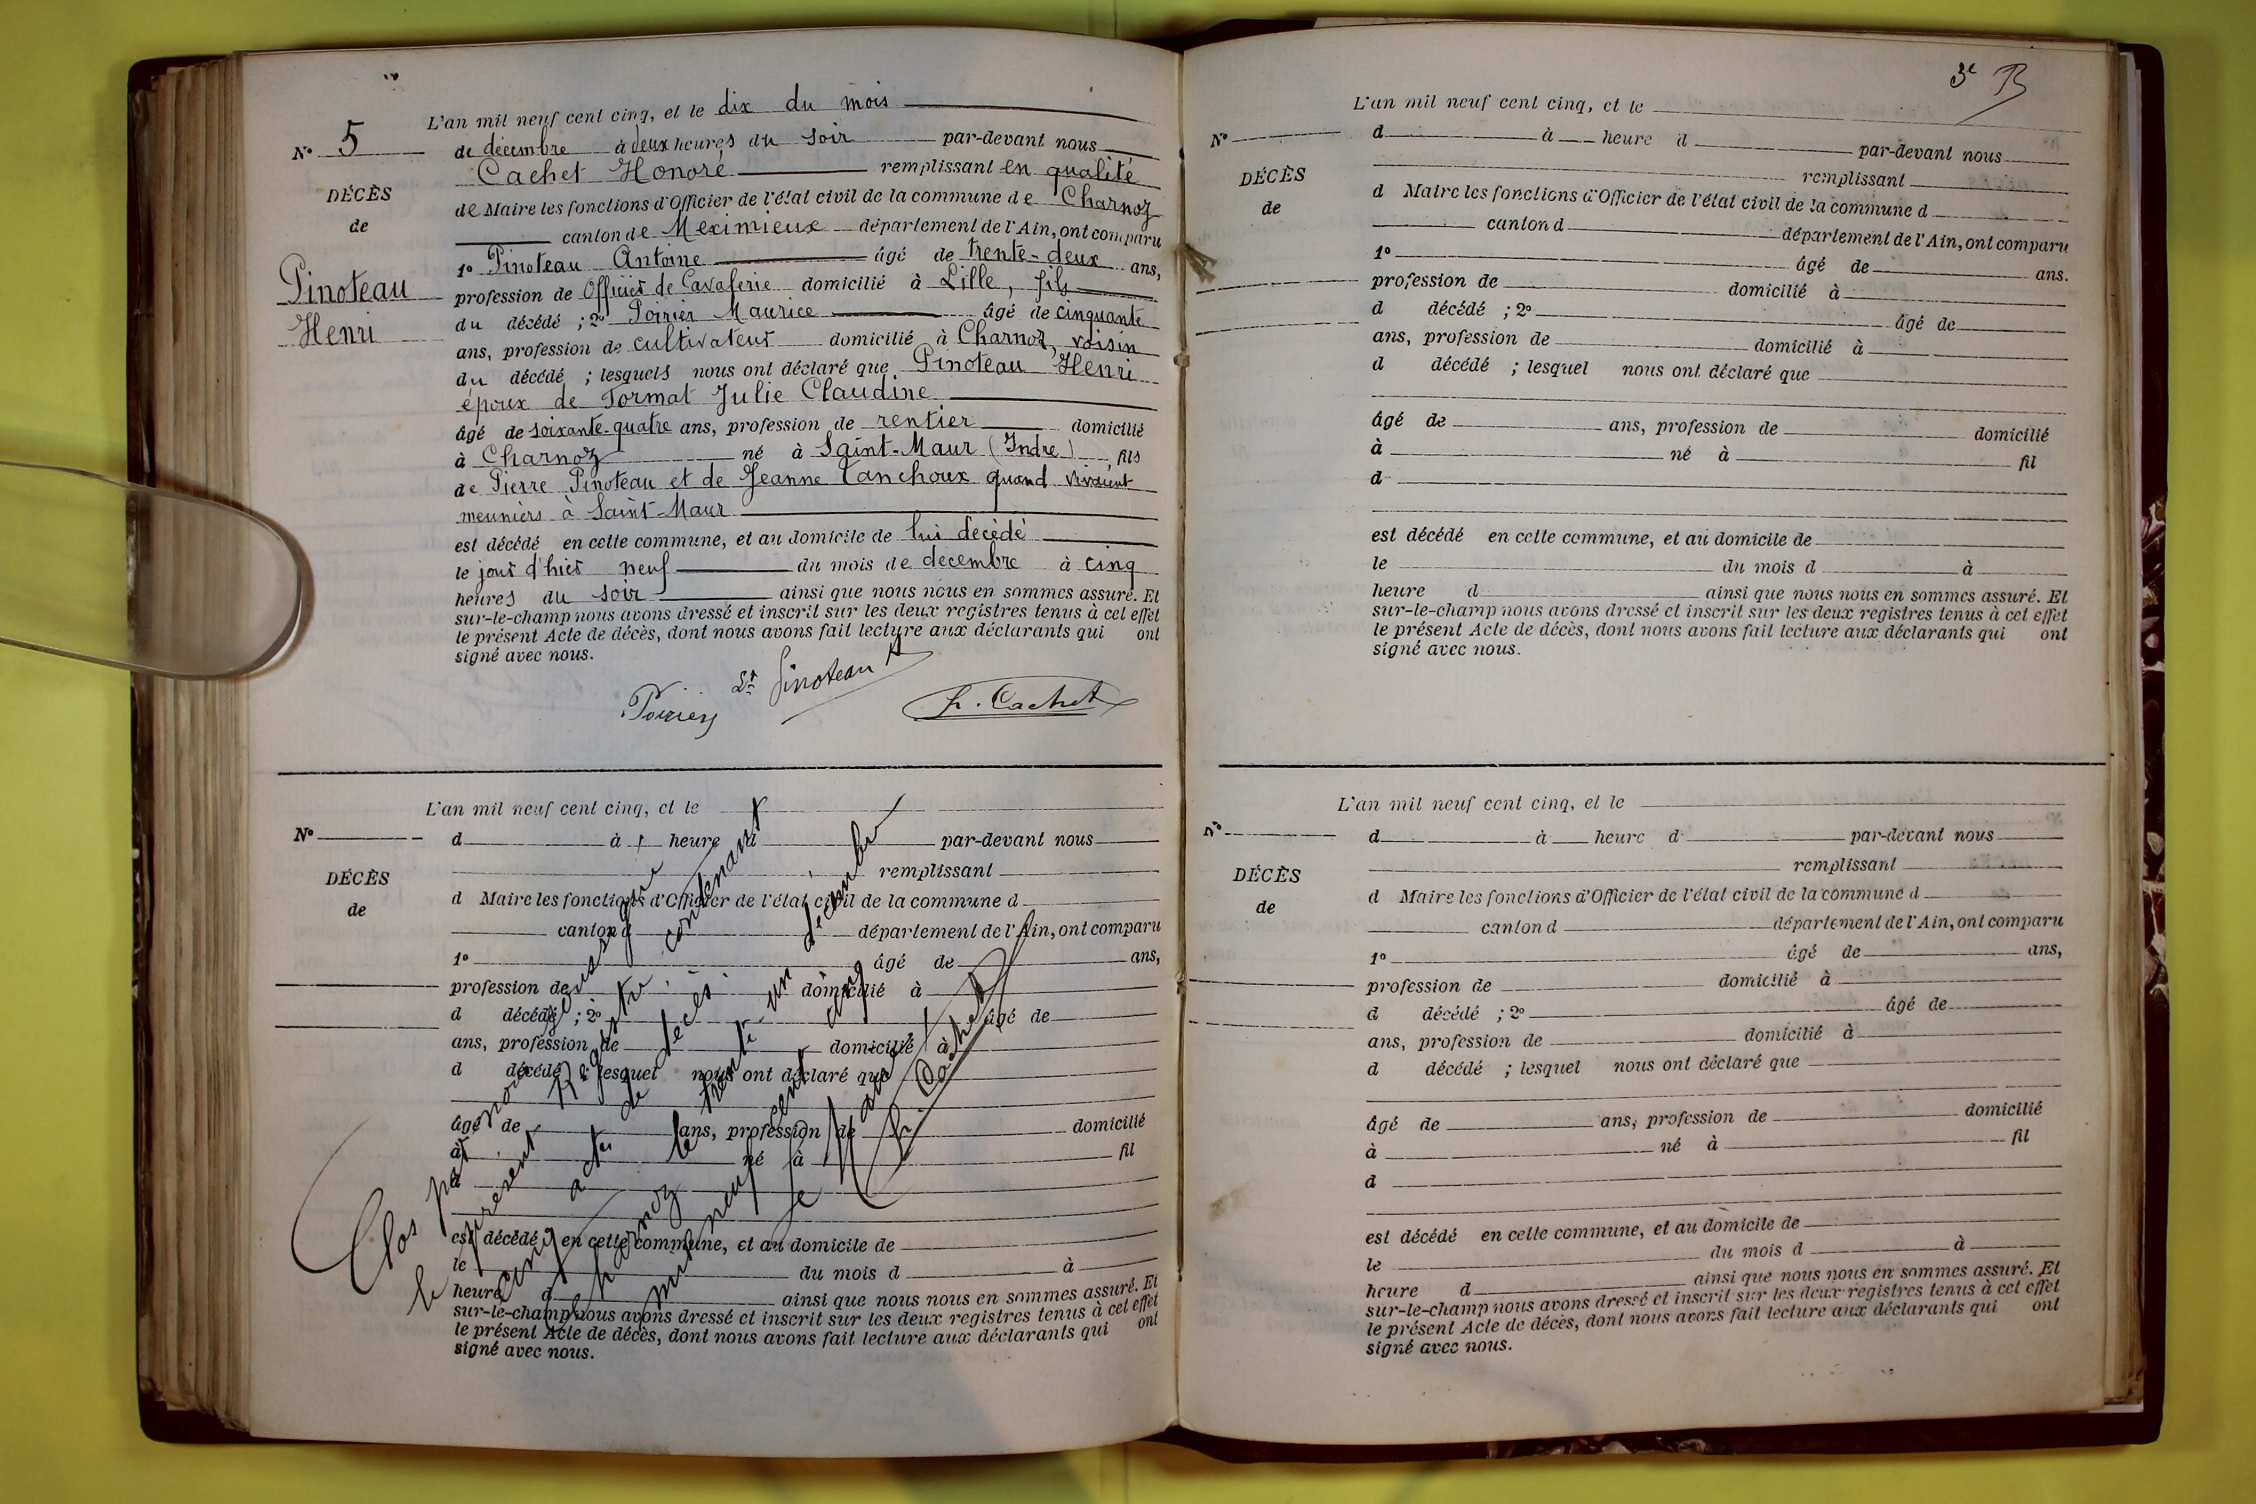 L'an mil neuf cent cinq, et le dix du mois
N° 5
de décembre à deux heures du soir par-devant nous
Cachet Honoré remplissant en qualité
DÉCÈS
de Maire les fonctions d'Officier de l'état civil de la commune de Charnoz
de
canton de Meximieux département de l'Ain, ont comparu
1° Pinoteau Antoine âgé de trente-deux ans,
Pinoteau
Henri
profession de Officier de Cavalerie domicilié à Lille, fils
du décédé ; 2° Poirier Maurice âgé de cinquante
ans, profession de cultivateur domicilié à Charnoz, voisin
du décédé ; lesquels nous ont déclaré que Pinoteau Henri
époux de Tormat Julie Claudine
âgé de soixante-quatre ans, profession de rentier domicilié
à Charnoz né à Saint-Maur (Indre), fils
de Pierre Pinoteau et de Jeanne Tanchoux quand vivaient
meuniers à Saint-Maur
est décédé en cette commune, et au domicile de lui décédé
le jour d'hier neuf du mois de décembre à cinq
heures du soir ainsi que nous nous en sommes assuré. Et
sur-le-champ nous avons dressé et inscrit sur les deux registres tenus à cet effet
le présent Acte de décès, dont nous avons fait lecture aux déclarants qui ont
signé avec nous.
Poirier Lt Pinoteau A h. Cachet
L'an mil neuf cent cinq, et le
N°
d à heure d par-devant nous
remplissant
DÉCÈS
d Maire les fonctions d'Officier de l'état civil de la commune d
de
canton d département de l'Ain, ont comparu
1° âgé de ans,
profession de domicilié à
d décédé ; 2° âgé de
ans, profession de domicilié à
d décédé ; lesquel nous ont déclaré que
âgé de ans, profession de domicilié
à né à fil
d
est décédé en cette commune, et au domicile de
le du mois d à
heure d ainsi que nous nous en sommes assuré. Et
sur-le-champ nous avons dressé et inscrit sur les deux registres tenus à cet effet
le présent Acte de décès, dont nous avons fait lecture aux déclarants qui ont
signé avec nous.
Clos par nous soussigné
le présent Registre contenant
cinq actes de décès.
Charnoz le trente-un décembre
mil neuf cent cinq
Le Maire
h. Cachet
3e B
L'an mil neuf cent cinq, et le
N°
d à heure d par-devant nous
remplissant
DÉCÈS
d Maire les fonctions d'Officier de l'état civil de la commune d
de
canton d département de l'Ain, ont comparu
1° âgé de ans.
profession de domicilié à
d décédé ; 2° âgé de
ans, profession de domicilié à
d décédé ; lesquel nous ont déclaré que
âgé de ans, profession de domicilié
à né à fil
d
est décédé en cette commune, et au domicile de
le du mois d à
heure d ainsi que nous nous en sommes assuré. Et
sur-le-champ nous avons dressé et inscrit sur les deux registres tenus à cet effet
le présent Acte de décès, dont nous avons fait lecture aux déclarants qui ont
signé avec nous.
L'an mil neuf cent cinq, et le
N°
d à heure d par-devant nous
remplissant
DÉCÈS
d Maire les fonctions d'Officier de l'état civil de la commune d
de
canton d département de l'Ain, ont comparu
1° âgé de ans,
profession de domicilié à
d décédé ; 2° âgé de
ans, profession de domicilié à
d décédé ; lesquel nous ont déclaré que
âgé de ans, profession de domicilié
à né à fil
d
est décédé en cette commune, et au domicile de
le du mois d à
heure d ainsi que nous nous en sommes assuré. Et
sur-le-champ nous avons dressé et inscrit sur les deux registres tenus à cet effet
le présent Acte de décès, dont nous avons fait lecture aux déclarants qui ont
signé avec nous.